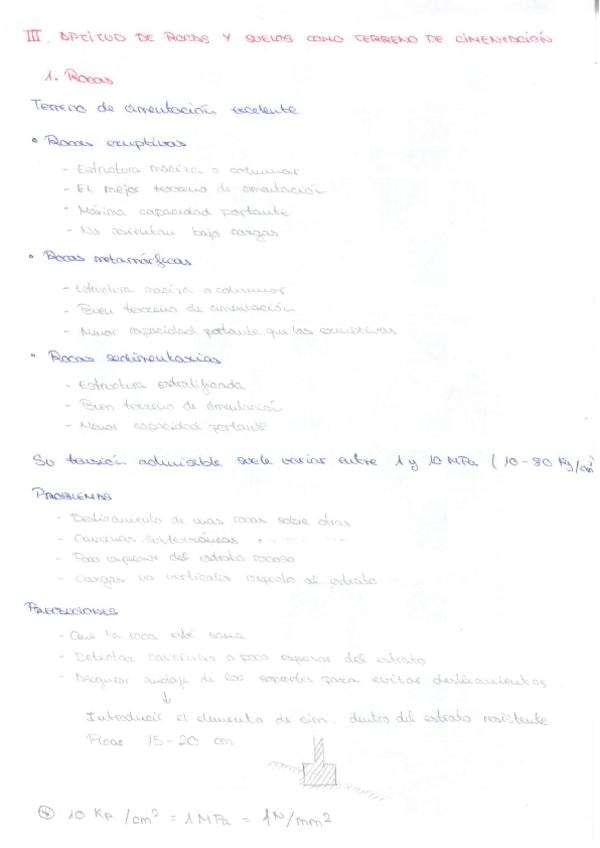 III. APTITUD DE ROCAS Y SUELOS COMO TERRENO DE CIMENTACIÓN
1. Rocas
Terreno de cimentación excelente
• Rocas eruptivas
- Estructura maciza o columnar
- El mejor terreno de cimentación
- Máxima capacidad portante
- No asientan bajo cargas
• Rocas metamórficas
- Estructura maciza o columnar
- Buen terreno de cimentación
- Menor capacidad portante que las eruptivas
• Rocas sedimentarias
- Estructura estratificada
- Buen terreno de cimentación
- Menor capacidad portante
Su tensión admisible suele variar entre 1 y 10 MPa (10-
PROBLEMAS
- Deslizamiento de unas rocas sobre otras
- Cavernas subterráneas
- Poco espesor del estrato rocoso
- Cargas no verticales respecto al estrato
PRECAUCIONES
- Que la roca esté sana
- Detectar cavernas o poco espesor del estrato
- Asegurar anclaje de los soportes para evitar deslizamientos
↓
Introducir el elemento de cim. dentro del estrato resistente
Picar 15-20 cm
* 10 Kp/cm² = 1 MPa = 1 N/mm²